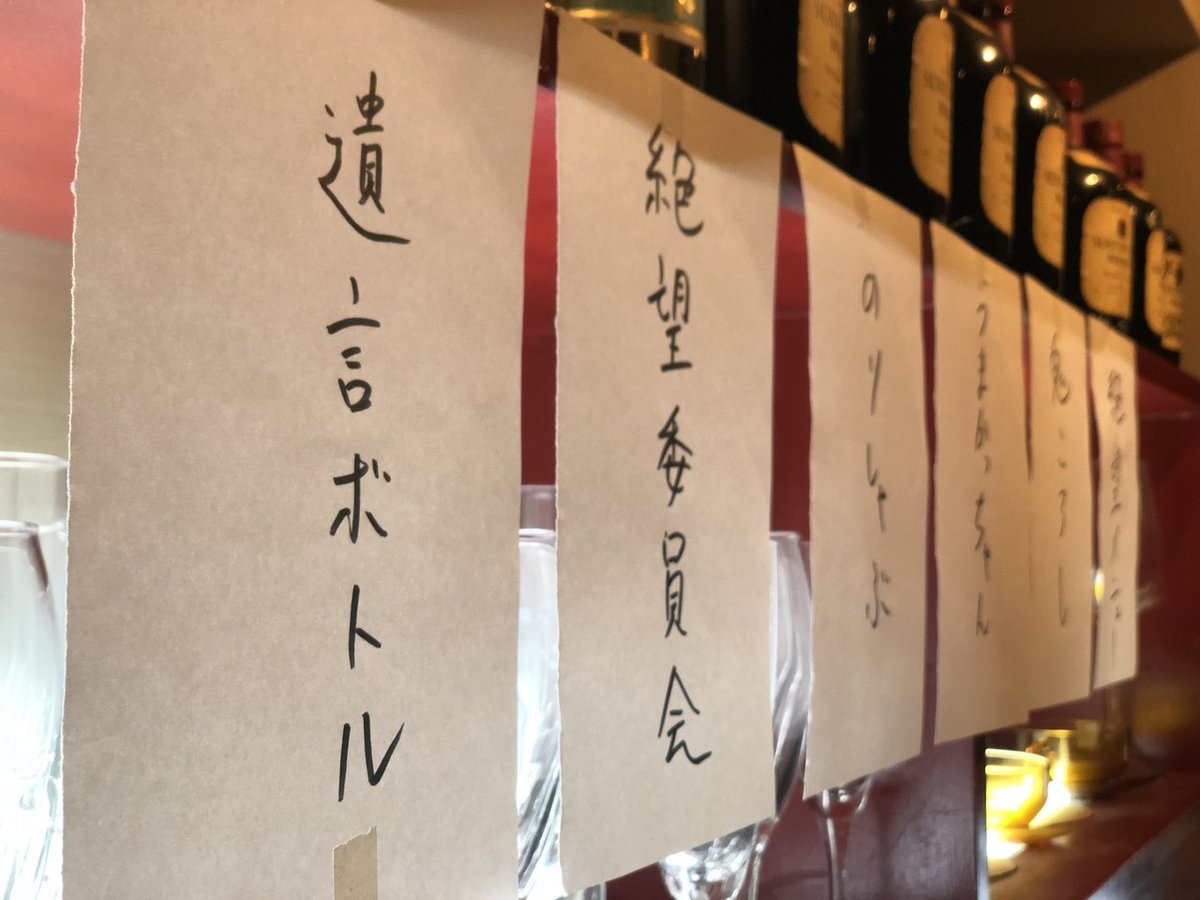 絶望メニュー
鬼ころし
うまかっちゃん
のりしゃぶ
絶望委員会
遺言ボトル